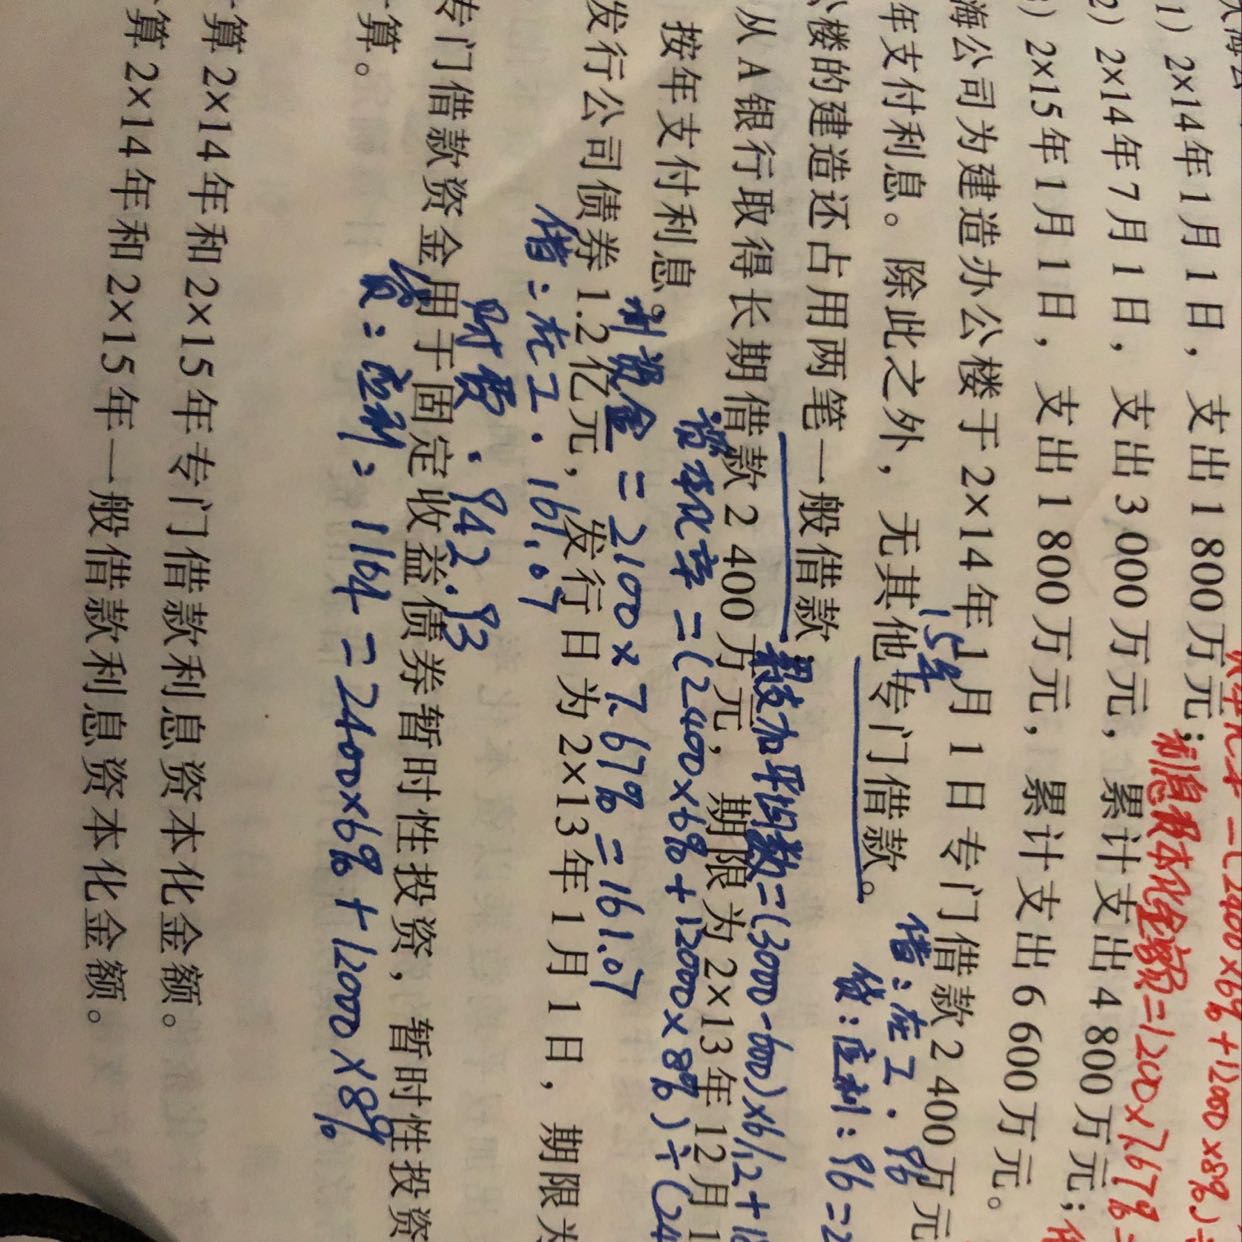 1) 2×14年1月1日，支出1 800万元；
2) 2×14年7月1日，支出3 000万元，累计支出4 800万元；
3) 2×15年1月1日，支出1 800万元，累计支出6 600万元。
海公司为建造办公楼于2×14年1月1日专门借款2 400万元
年支付利息。除此之外，无其他专门借款。
公楼的建造还占用两笔一般借款：
从A银行取得长期借款2 400万元，期限为2×13年12月1
按年支付利息。
发行公司债券1.2亿元，发行日为2×13年1月1日，期限为
专门借款资金用于固定收益债券暂时性投资，暂时性投资
算。
算2×14年和2×15年专门借款利息资本化金额。
算2×14年和2×15年一般借款利息资本化金额。
=(2400×6%+12000×8%)÷
利息资本化金额=1200×7.67%=
15年
借：在工. 96
贷：应利：96=2
累支加平均数=(3000-600)×6/12+18
资本化率=(2400×6%+12000×8%)÷(24
利资金=2100×7.67%=161.07
借：在工. 161.07
财费. 942.93
贷：应利. 1104=2400×6%+12000×8%